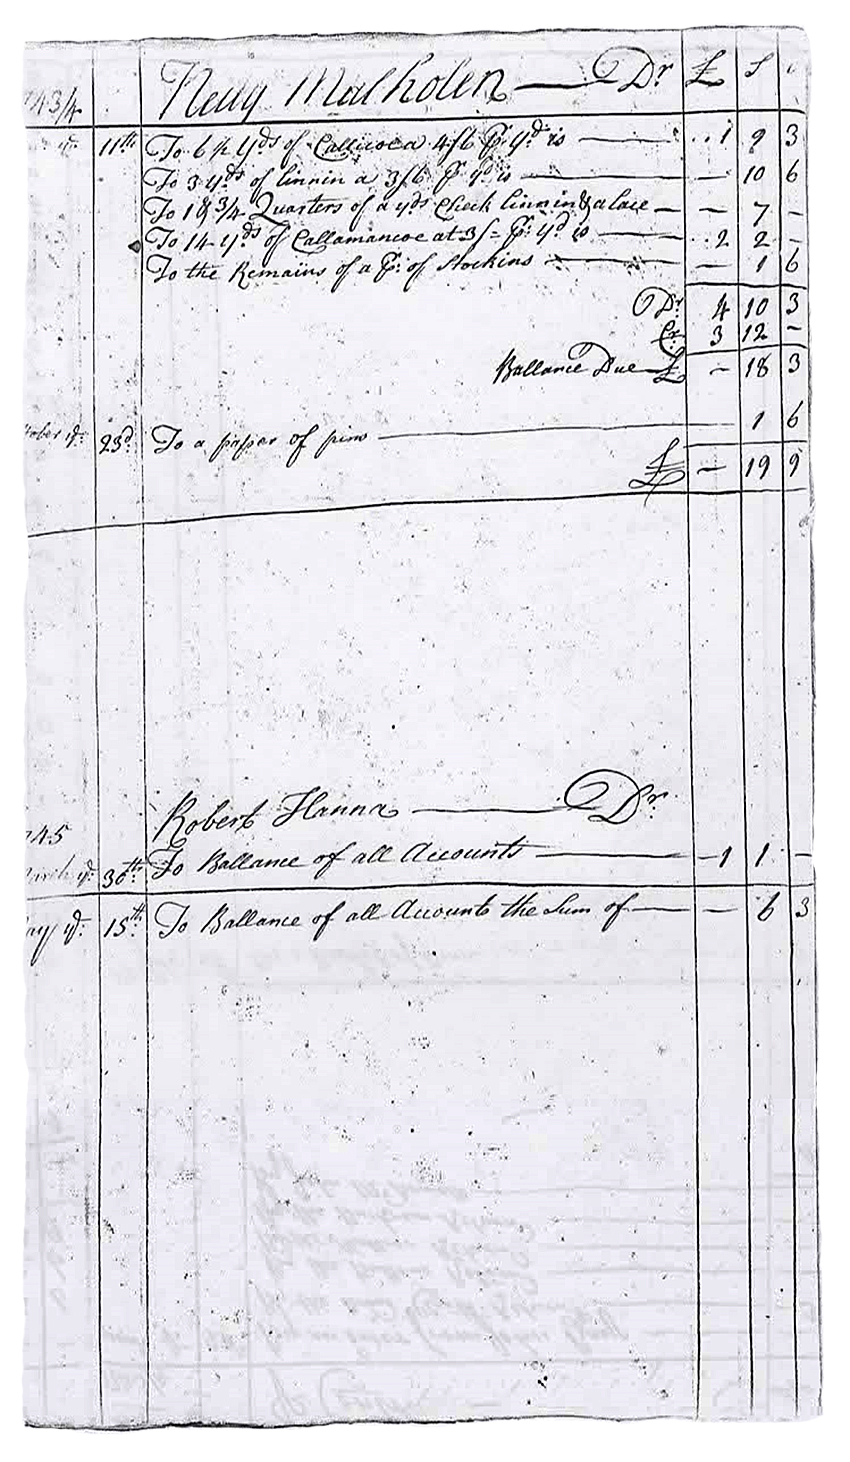 43/4 Nelly Malholen — Dr £ S
ye: 11th To 6 ½ yds of Callicoe a 4/6 pr. yd is — 1 9 3
To 3 yds of linnin a 3/6 pr yd is — — 10 6
To 1 & 3/4 Quarters of a yds Check linnin & a lace — — 7 —
To 14 yds of Callamancoe at 3/= pr: yd is — 2 2 —
To the Remains of a Pr: of Stockins — — 1 6
Dr 4 10 3
Cr 3 12 —
Ballance Due £ — 18 3
tober ye: 23d To a paper of pins — 1 6
£ — 19 9
Robert Hanna — Dr
45
arch ye: 30th: To Ballance of all Accounts — 1 1 —
ay ye: 15th: To Ballance of all Accounts the Sum of — — 6 3